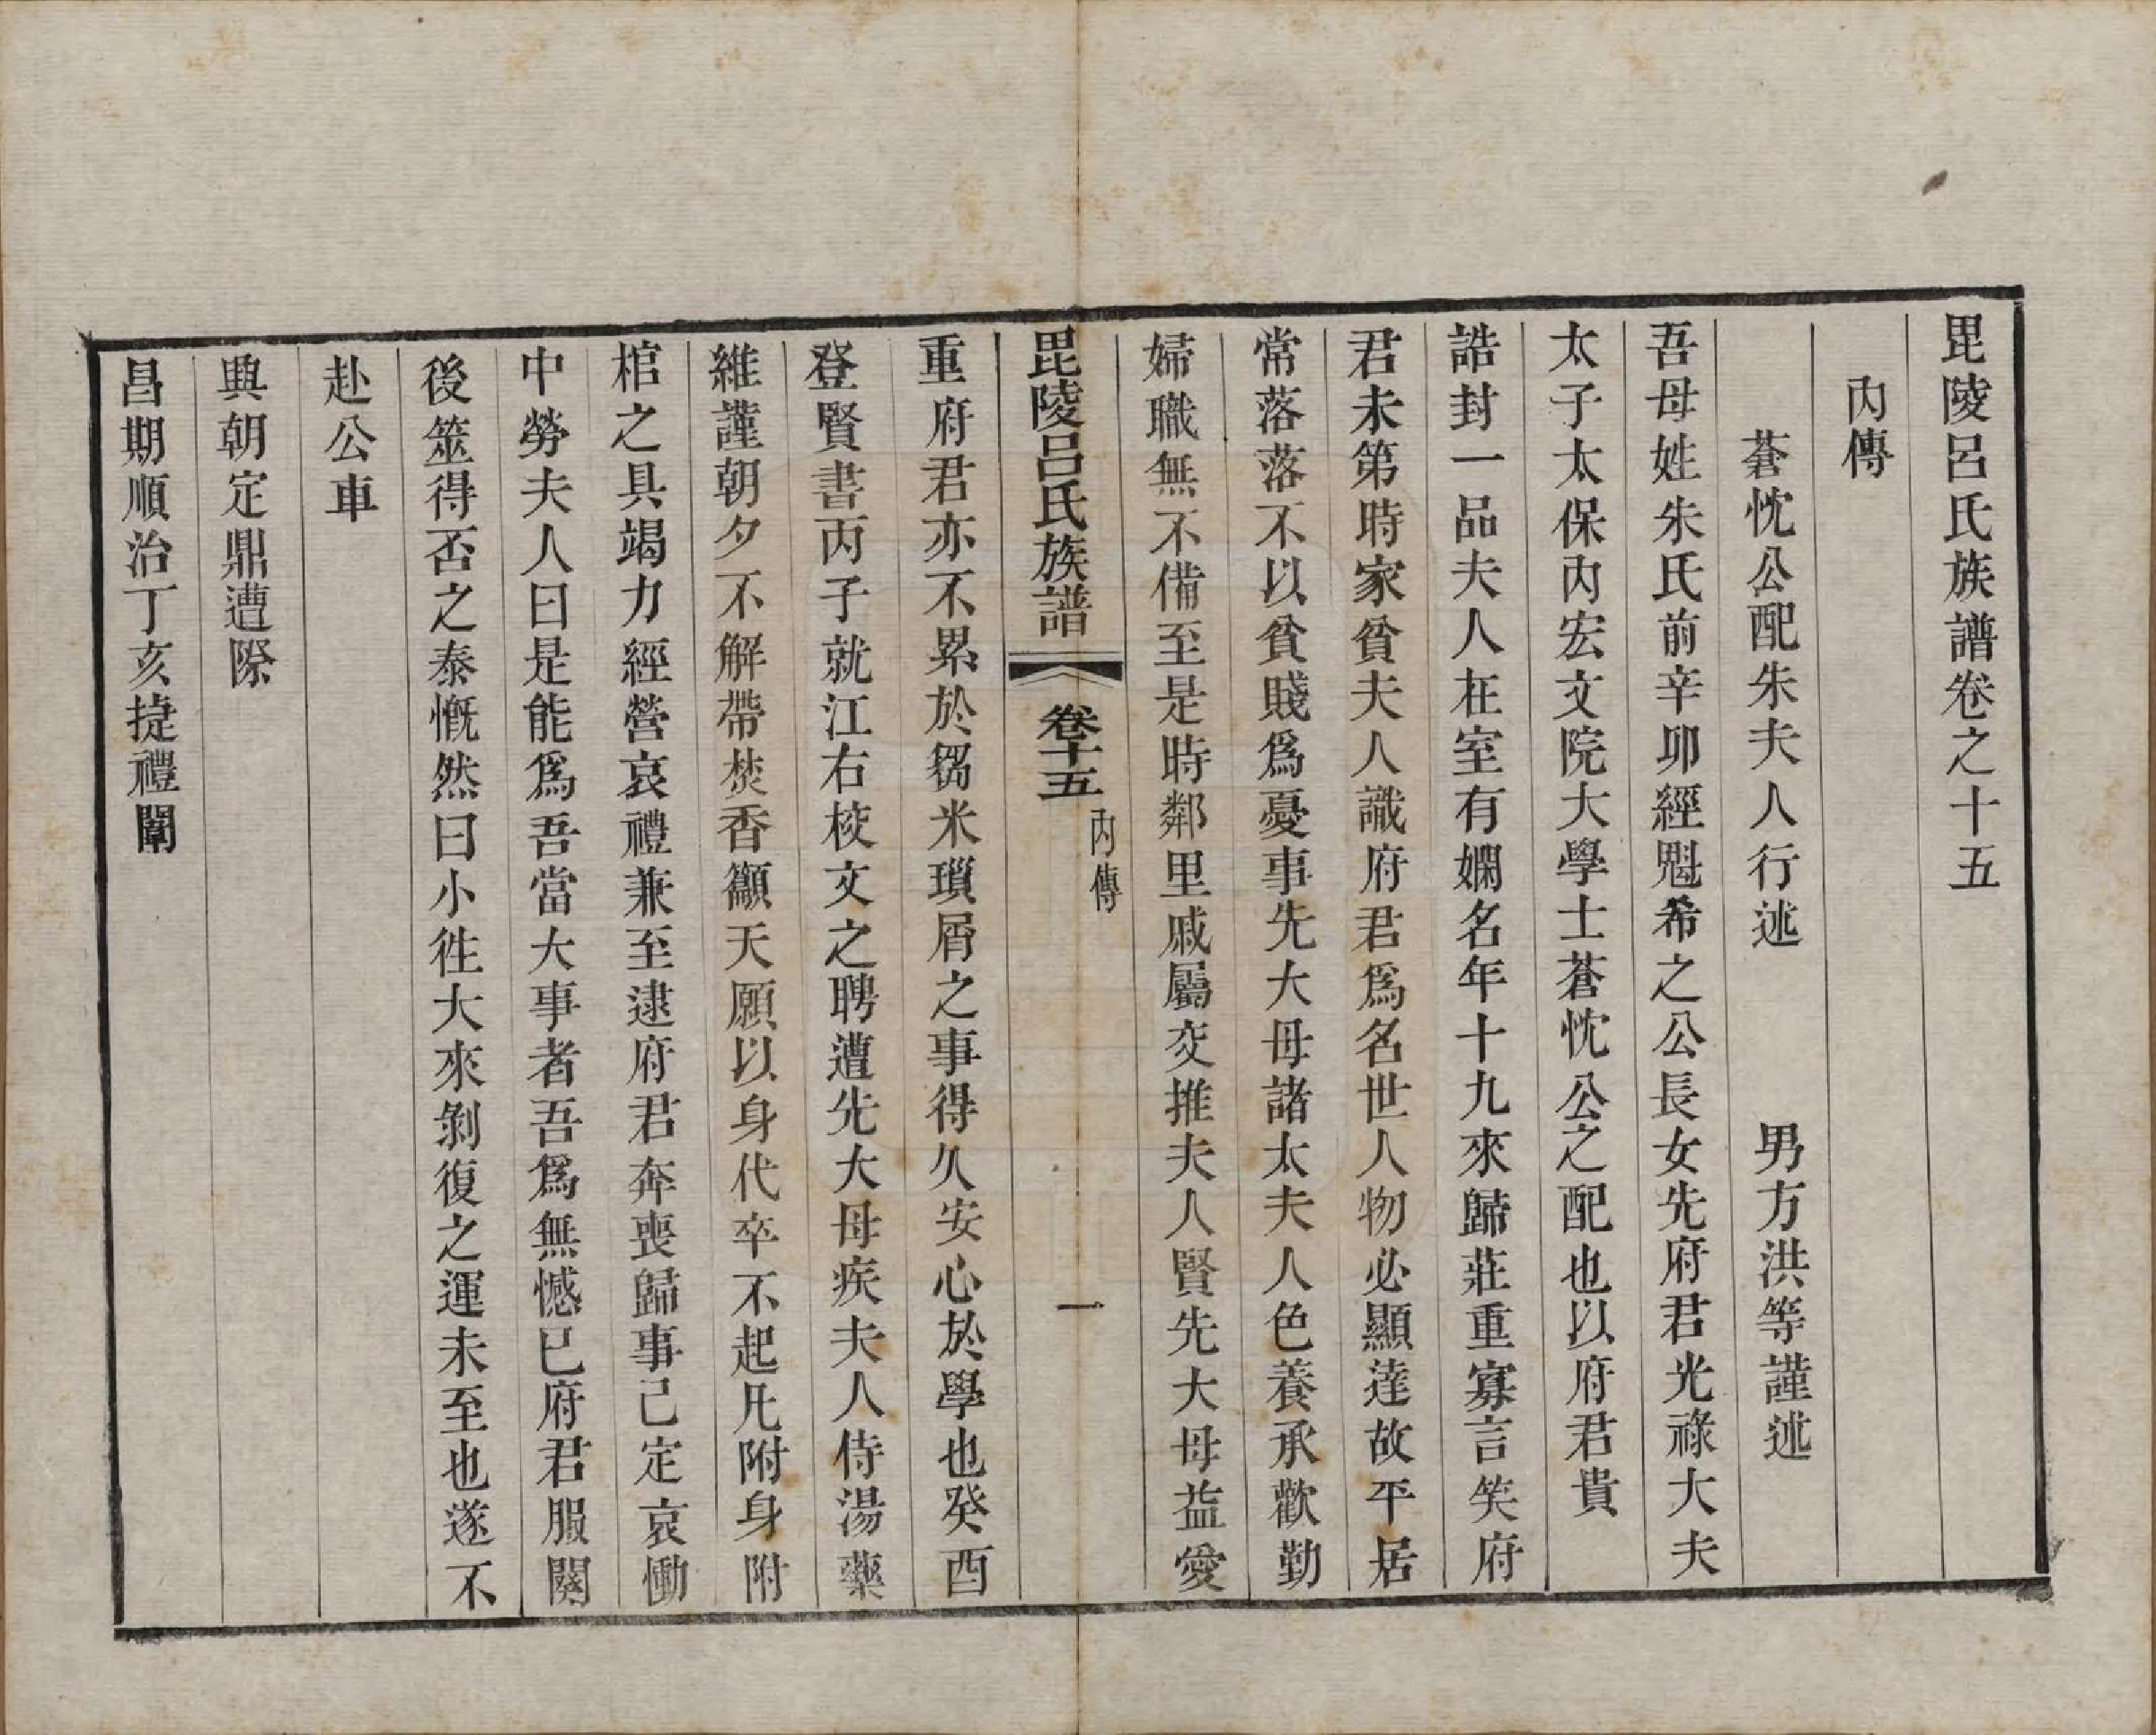 毘陵呂氏族譜卷之十五
內傳
蒼忱公配朱夫人行述　男方洪等謹述
吾母姓朱氏前辛卯經魁希之公長女先府君光祿大夫
太子太保內宏文院大學士蒼忱公之配也以府君貴
誥封一品夫人在室有嫻名年十九來歸莊重寡言笑府
君未第時家貧夫人識府君爲名世人物必顯達故平居
常落落不以貧賤爲憂事先大母諸太夫人色養承歡勤
婦職無不備至是時鄰里戚屬交推夫人賢先大母益愛
毘陵呂氏族譜　卷十五　內傳　一
重府君亦不累於芻米瑣屑之事得久安心於學也癸酉
登賢書丙子就江右校文之聘遭先大母疾夫人侍湯藥
維謹朝夕不解帶焚香籲天願以身代卒不起凡附身附
棺之具竭力經營哀禮兼至逮府君奔喪歸事己定哀慟
中勞夫人曰是能爲吾當大事者吾爲無憾已府君服闋
後筮得否之泰慨然曰小徃大來剝復之運未至也遂不
赴公車
興朝定鼎遭際
昌期順治丁亥捷禮闈